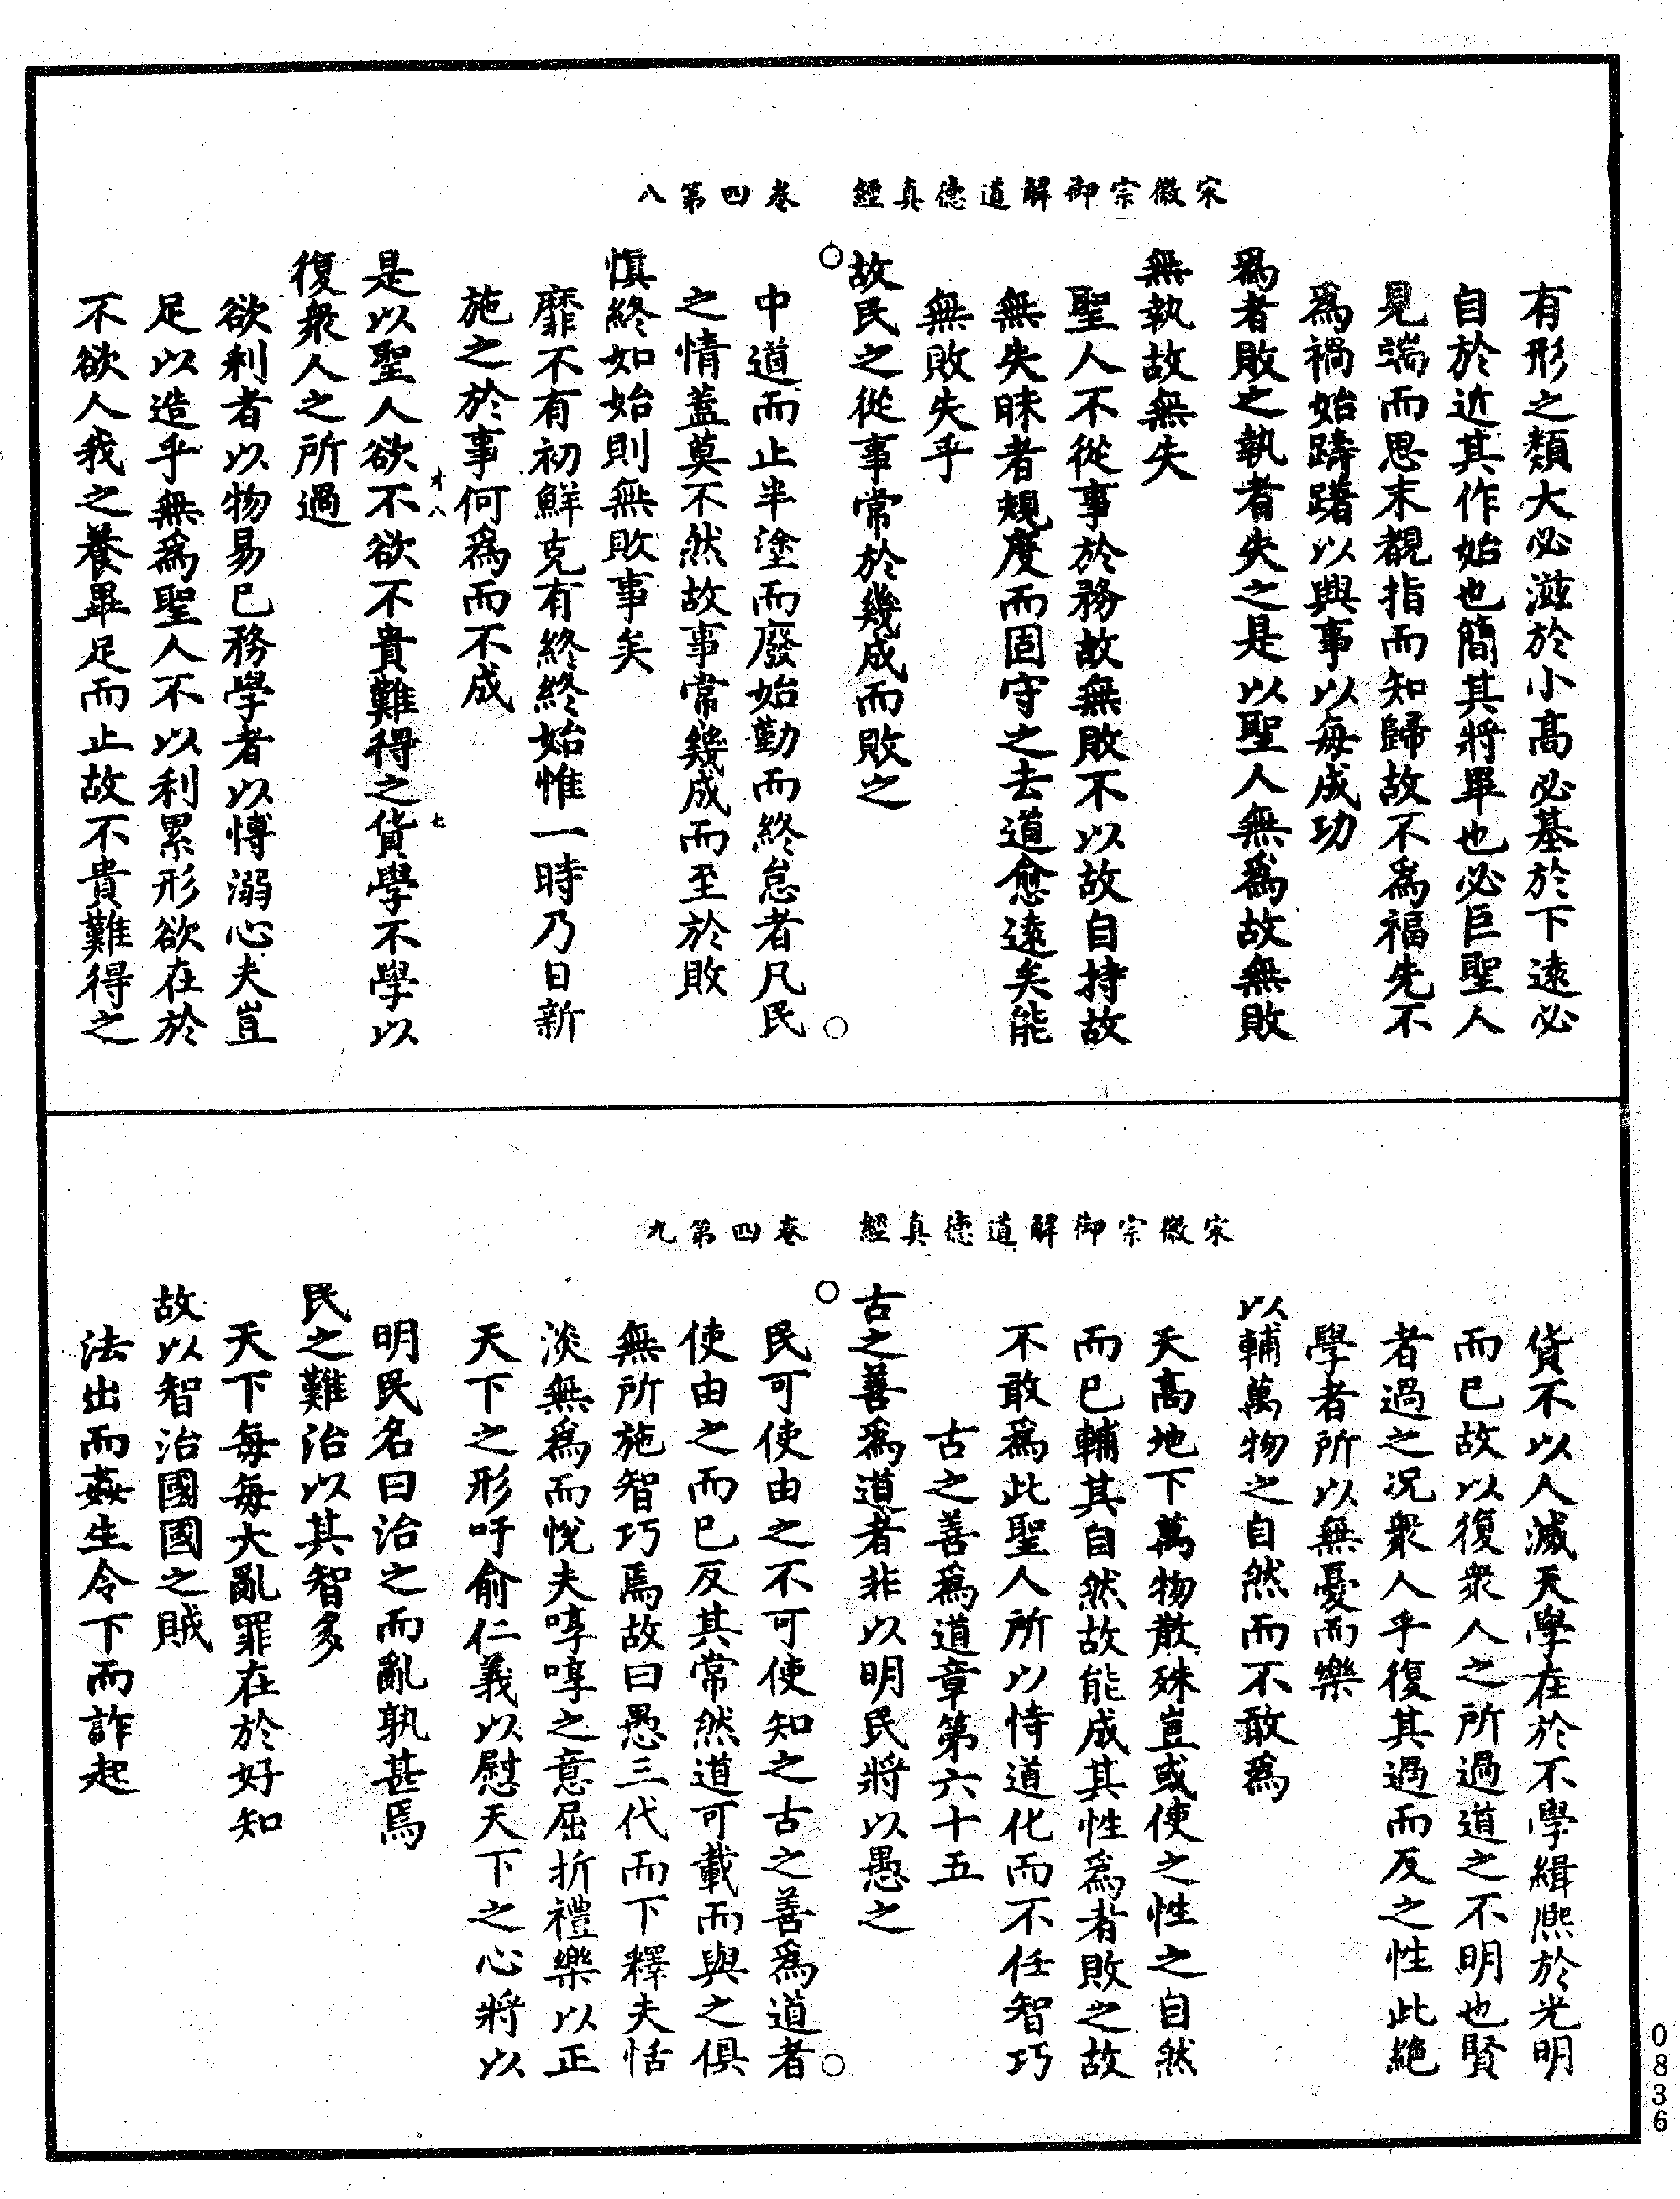 宋徽宗御解道德真經　卷四第八
有形之類大必滋於小高必基於下遠必
自於近其作始也簡其將畢也必巨聖人
見端而思末覩指而知歸故不為福先不
為禍始躊躇以興事以每成功
為者敗之執者失之是以聖人無為故無敗
無執故無失
聖人不從事於務故無敗不以故自持故
無失昧者規度而固守之去道愈遠矣能
無敗失乎
故民之從事常於幾成而敗之
中道而止半塗而廢始勤而終怠者凡民
之情蓋莫不然故事常幾成而至於敗
慎終如始則無敗事矣
靡不有初鮮克有終終始惟一時乃日新
施之於事何為而不成
才八　七
是以聖人欲不欲不貴難得之貨學不學以
復衆人之所過
欲利者以物易己務學者以博溺心夫豈
足以造乎無為聖人不以利累形欲在於
不欲人我之養畢足而止故不貴難得之
宋徽宗御解道德真經　卷四第九
貨不以人滅天學在於不學緝熙於光明
而已故以復衆人之所過道之不明也賢
者過之况衆人乎復其過而反之性此絶
學者所以無憂而樂
以輔萬物之自然而不敢為
天高地下萬物散殊豈或使之性之自然
而已輔其自然故能成其性為者敗之故
不敢為此聖人所以恃道化而不任智巧
古之善為道章第六十五
古之善為道者非以明民將以愚之
民可使由之不可使知之古之善為道者
使由之而已反其常然道可載而與之俱
無所施智巧焉故曰愚三代而下釋夫恬
淡無為而悅夫啍啍之意屈折禮樂以正
天下之形吁俞仁義以慰天下之心將以
明民名曰治之而亂孰甚焉
民之難治以其智多
天下每每大亂罪在於好知
故以智治國國之賊
法出而姦生令下而詐起
0836